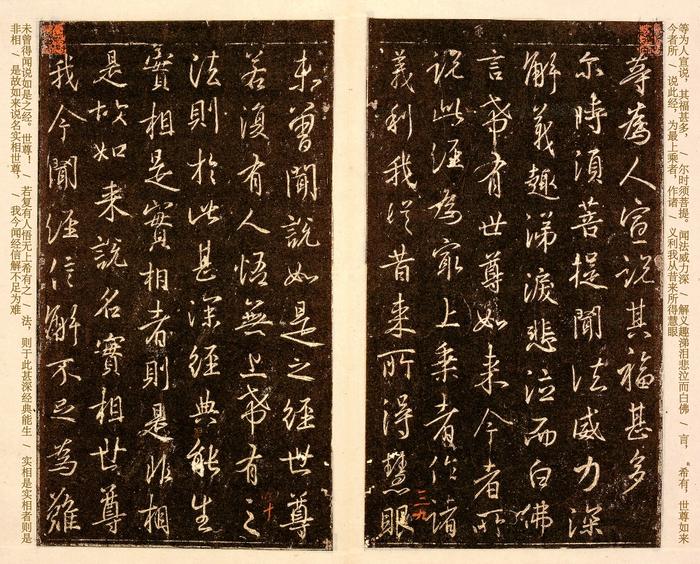 等为人宣说，其福甚多。 / 尔时须菩提。闻法威力深 / 解义趣涕泪悲泣而白佛 / 言，希有，世尊如来
今者所 / 说此经，为最上乘者，作诸 / 义利我从昔来所得慧眼
尊為人宣說其福甚多
尔時須菩提聞法威力深
解義趣涕淚悲泣而白佛
言希有世尊如来今者所
說此經為最上乗者作諸
義利我從昔来所得慧眼
三九
未曾聞說如是之經世尊
若復有人悟無上希有之
法則於此甚深經典能生
實相是實相者則是非相
是故如来說名實相世尊
我今聞經信解不足為難
四十
未曾得闻说如是之经。世尊！ / 若复有人悟无上希有之 / 法，则于此甚深经典能生 / 实相是实相者则是
非相 / 是故如来说名实相世尊， / 我今闻经信解不足为难